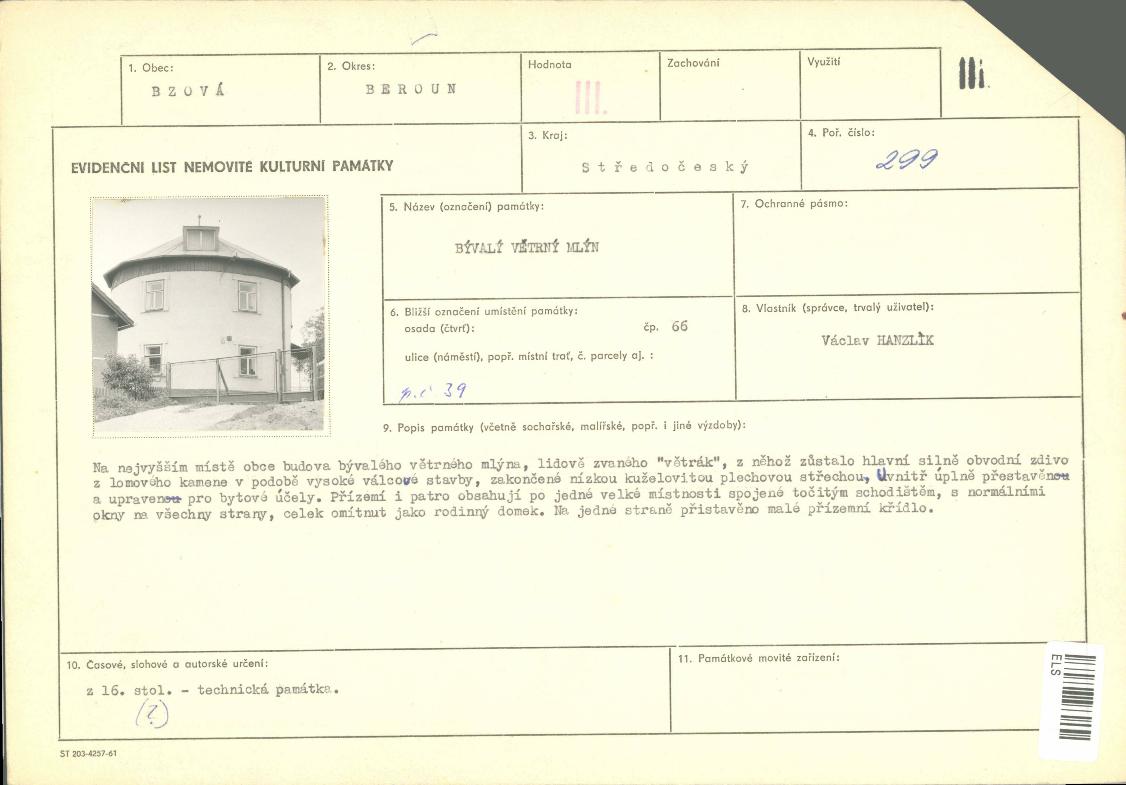 1. Obec:
BZOVÁ
2. Okres:
BEROUN
Hodnota
III.
Zachování
Využití
III.
EVIDENČNÍ LIST NEMOVITÉ KULTURNÍ PAMÁTKY
3. Kraj:
Středočeský
4. Poř. číslo:
299
5. Název (označení) památky:
BÝVALÝ VĚTRNÝ MLÝN
7. Ochranné pásmo:
6. Bližší označení umístění památky:
osada (čtvrť):
čp. 66
ulice (náměstí), popř. místní trať, č. parcely aj. :
p.č 39
8. Vlastník (správce, trvalý uživatel):
Václav HANZLÍK
9. Popis památky (včetně sochařské, malířské, popř. i jiné výzdoby):
Na nejvyšším místě obce budova bývalého větrného mlýna, lidově zvaného "větrák", z něhož zůstalo hlavní silně obvodní zdivo
z lomového kamene v podobě vysoké válcové stavby, zakončené nízkou kuželovitou plechovou střechou, Uvnitř úplně přestavěnou
a upravenou pro bytové účely. Přízemí i patro obsahují po jedné velké místnosti spojené točitým schodištěm, s normálními
okny na všechny strany, celek omítnut jako rodinný domek. Na jedné straně přistavěno malé přízemní křídlo.
10. Časové, slohové a autorské určení:
z 16. stol. - technická památka.
(?)
11. Památkové movité zařízení:
ELS
ST 203-4257-61